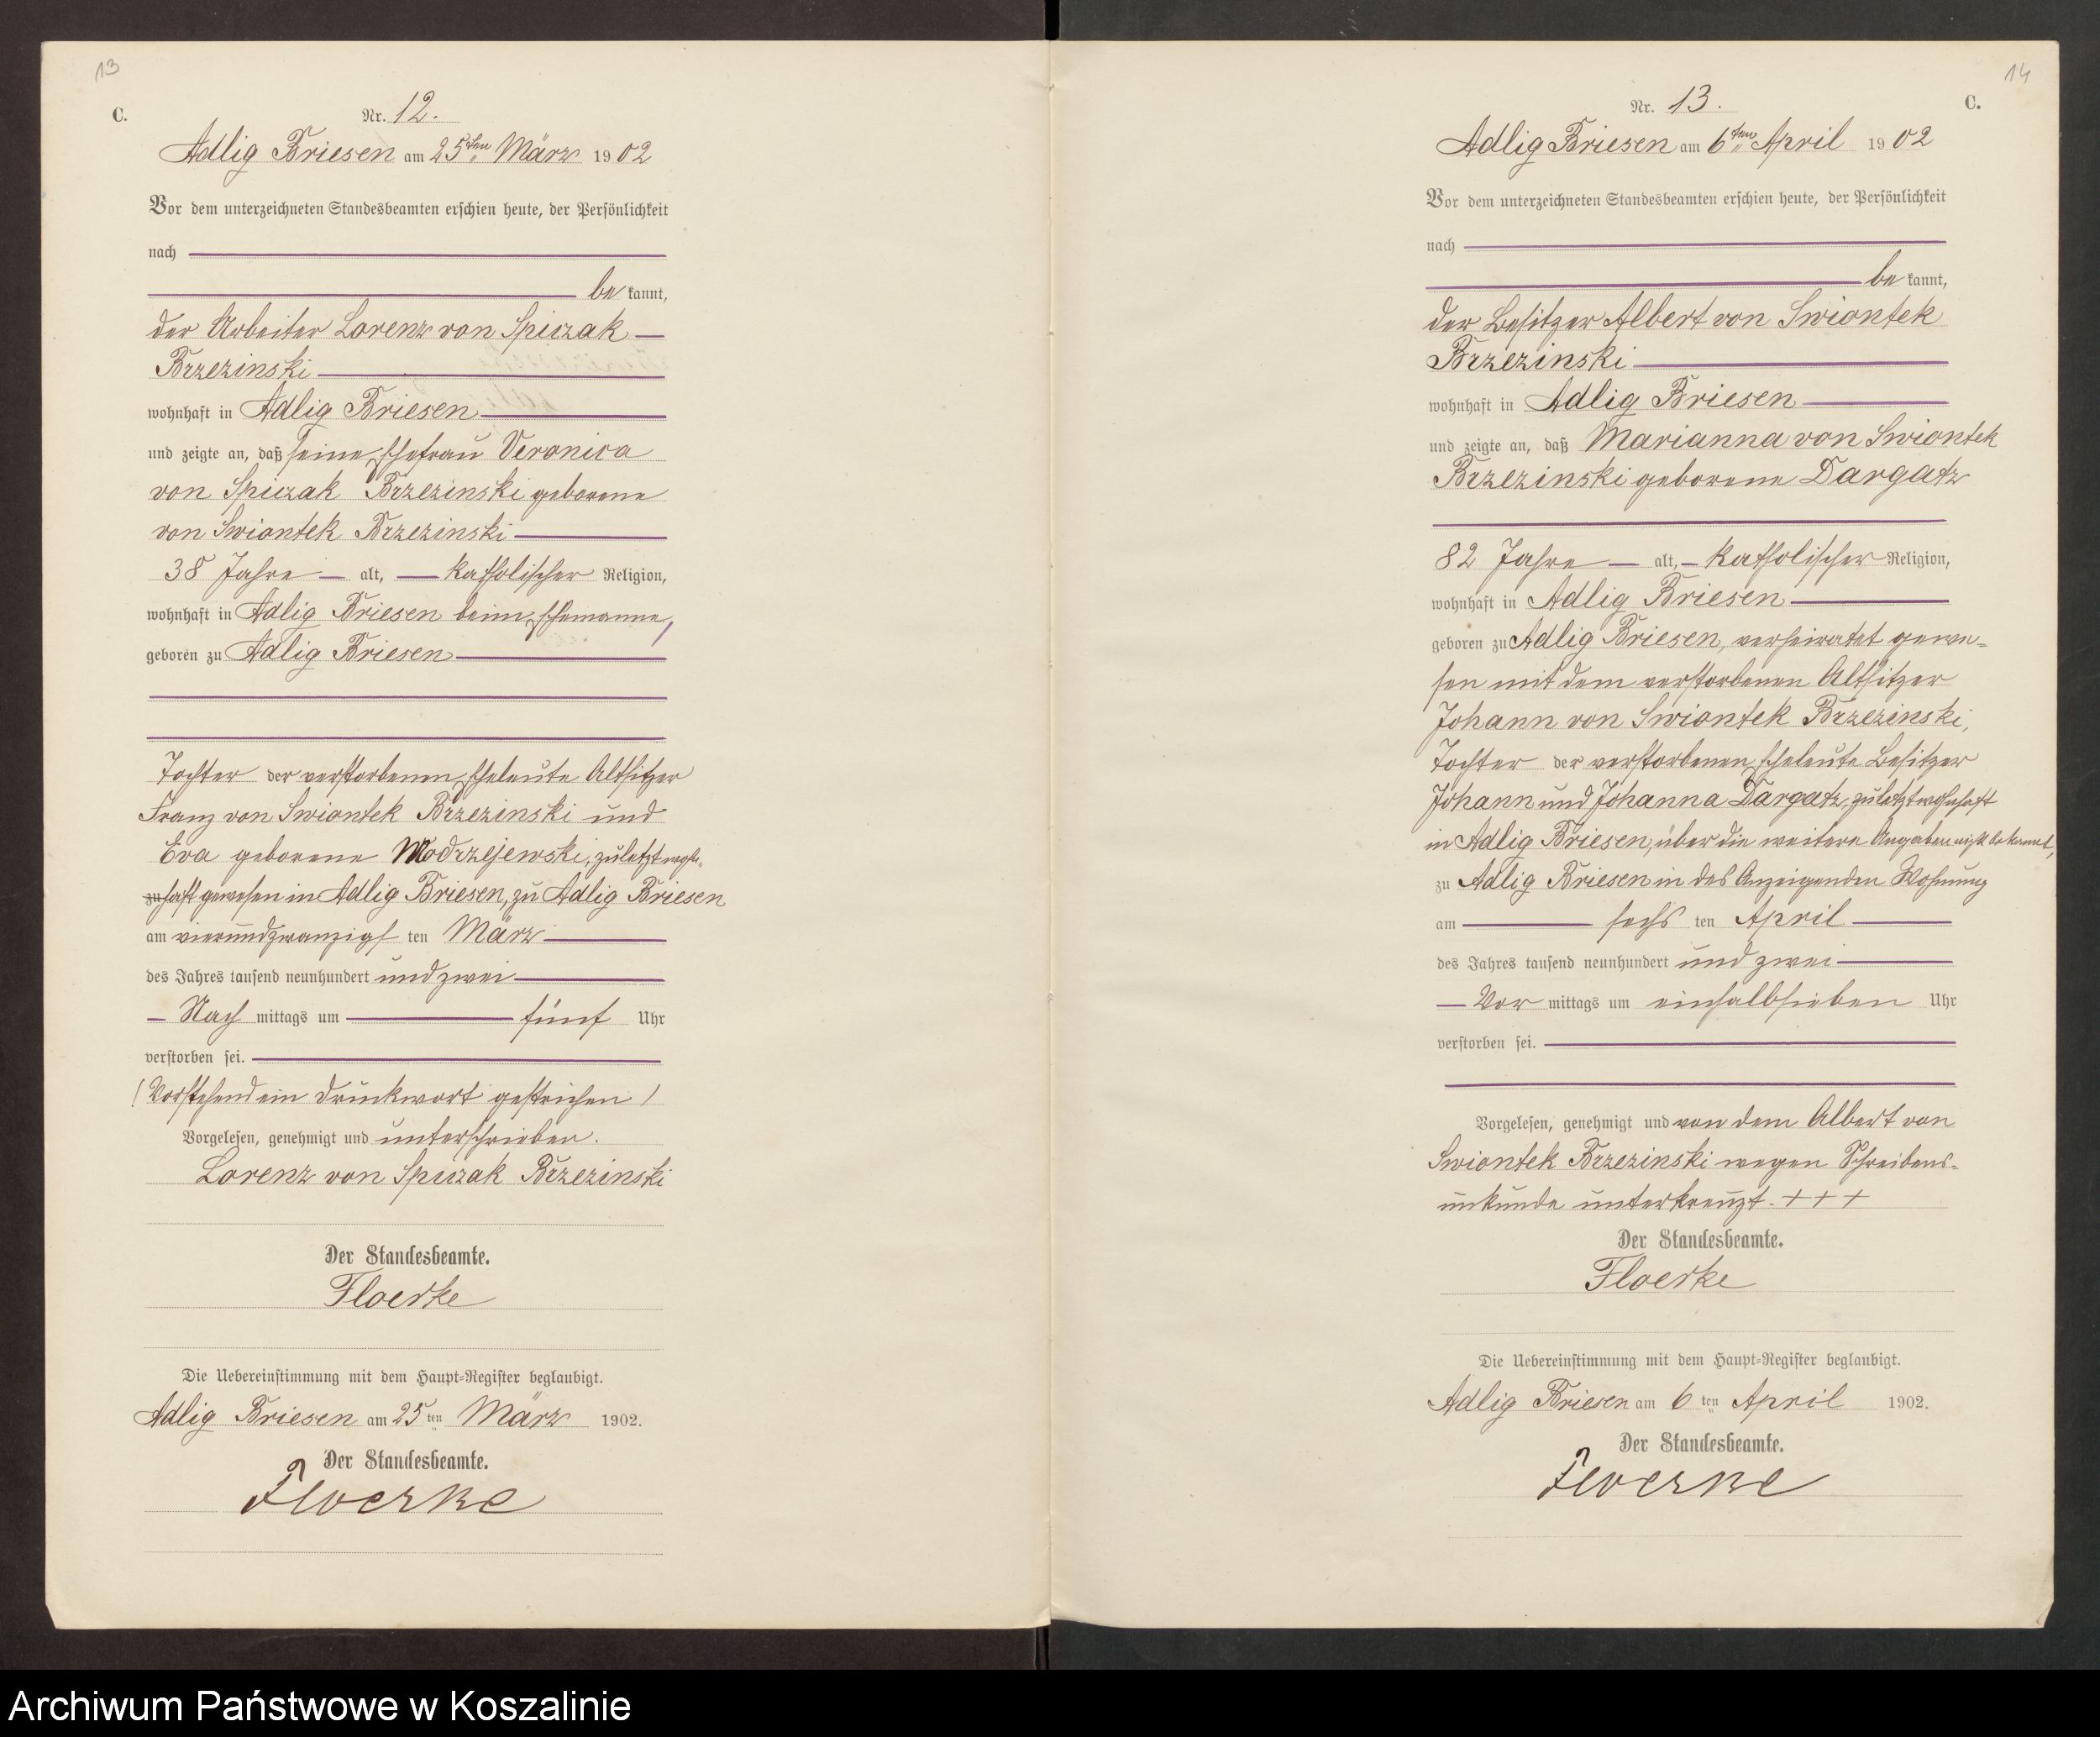 13
C.
Nr. 12.
Adlig Briesen am 25ten März 1902
Vor dem unterzeichneten Standesbeamten erschien heute, der Persönlichkeit
nach
be kannt,
der Arbeiter Lorenz von Spiczak
Brzezinski
wohnhaft in Adlig Briesen
und zeigte an, daß seine Ehefrau Veronica
von Spiczak Brzezinski geborene
von Swiontek Brzezinski
38 Jahre alt, katholischer Religion,
wohnhaft in Adlig Briesen beim Ehemanne,
geboren zu Adlig Briesen
Tochter der verstorbenen Eheleute Altsitzer
Franz von Swiontek Brzezinski und
Eva geborene Modrzejewski, zuletzt wohn-
zu haft gewesen in Adlig Briesen, zu Adlig Briesen
am vierundzwanzigs ten März
des Jahres tausend neunhundert und zwei
Nach mittags um fünf Uhr
verstorben sei.
(Vorstehend ein Druckwort gestrichen)
Vorgelesen, genehmigt und unterschrieben.
Lorenz von Spiczak Brzezinski
Der Standesbeamte.
Floerke
Die Uebereinstimmung mit dem Haupt-Register beglaubigt.
Adlig Briesen am 25ten März 1902.
Der Standesbeamte.
Floerke
14
C.
Nr. 13.
Adlig Briesen am 6ten April 1902
Vor dem unterzeichneten Standesbeamten erschien heute, der Persönlichkeit
nach
be kannt,
der Besitzer Albert von Swiontek
Brzezinski
wohnhaft in Adlig Briesen
und zeigte an, daß Marianna von Swiontek
Brzezinski geborene Dargatz
82 Jahre alt, katholischer Religion,
wohnhaft in Adlig Briesen
geboren zu Adlig Briesen, verheiratet gewe-
sen mit dem verstorbenen Altsitzer
Johann von Swiontek Brzezinski,
Tochter der verstorbenen Eheleute Besitzer
Johann und Johanna Dargatz, zuletzt wohnhaft
in Adlig Briesen, über die weitere Angaben nicht bekannt,
zu Adlig Briesen in des Anzeigenden Wohnung
am sechs ten April
des Jahres tausend neunhundert und zwei
Vor mittags um einhalbsieben Uhr
verstorben sei.
Vorgelesen, genehmigt und von dem Albert von
Swiontek Brzezinski wegen Schreibens-
unkunde unterkreuzt. + + +
Der Standesbeamte.
Floerke
Die Uebereinstimmung mit dem Haupt-Register beglaubigt.
Adlig Briesen am 6 ten April 1902.
Der Standesbeamte.
Floerke
Archiwum Państwowe w Koszalinie